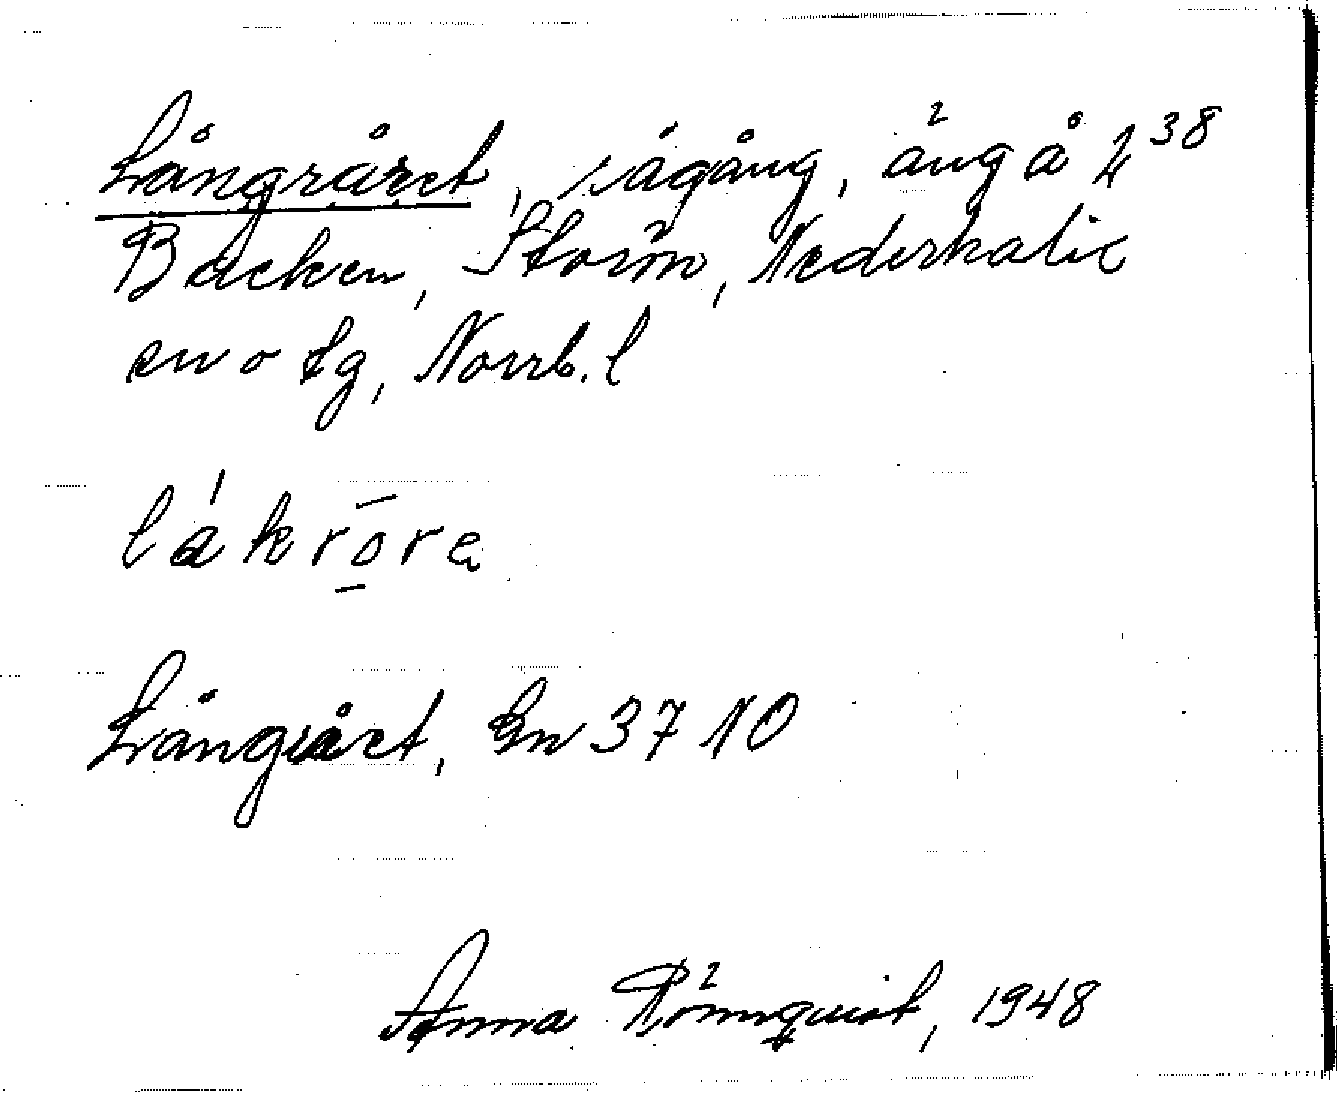 Långråret, rågång, äng å 2³⁸
Backen, Storön, Nederkalix
sn o tg, Norrb. l
låkrōre
Långråret, En 37 NO
Anna Rönnquist, 1948